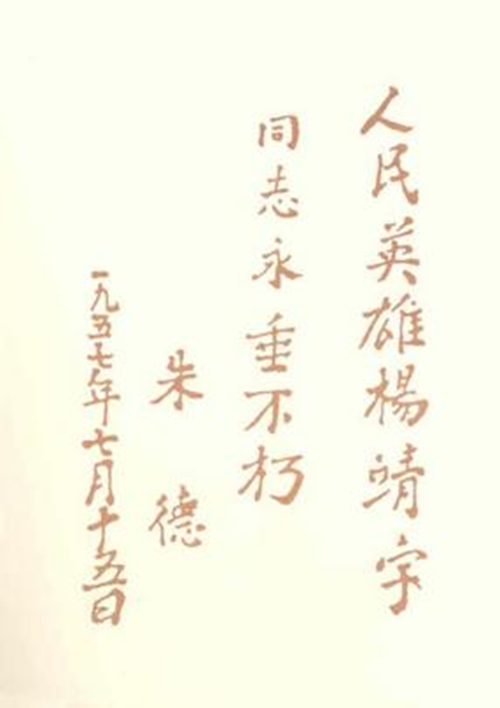 人民英雄楊靖宇
同志永垂不朽
朱德
一九五七年七月十五日